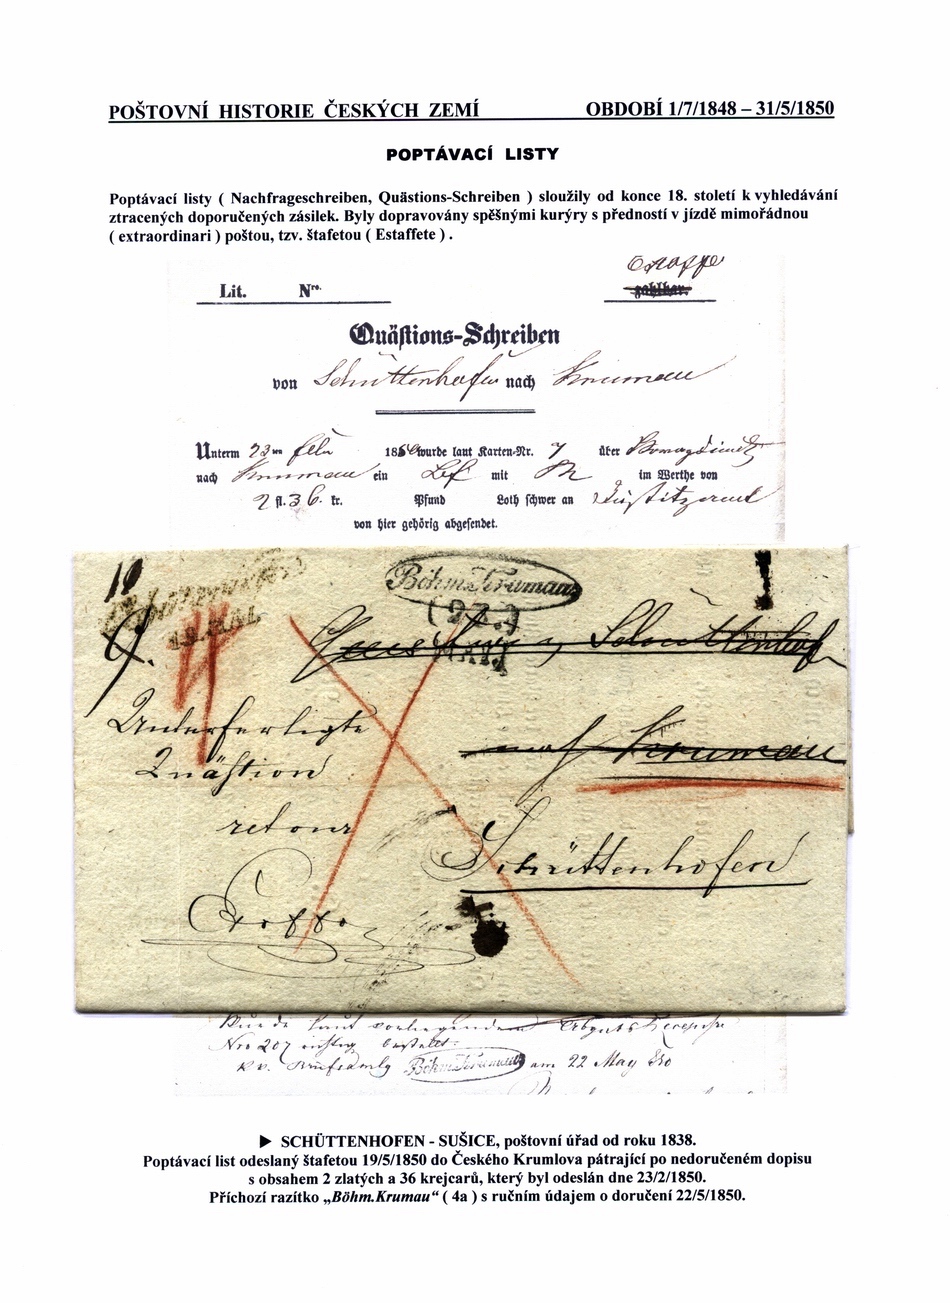 POŠTOVNÍ HISTORIE ČESKÝCH ZEMÍ OBDOBÍ 1/7/1848 – 31/5/1850
POPTÁVACÍ LISTY
Poptávací listy ( Nachfrageschreiben, Quästions-Schreiben ) sloužily od konce 18. století k vyhledávání
ztracených doporučených zásilek. Byly dopravovány spěšnými kurýry s předností v jízdě mimořádnou
( extraordinari ) poštou, tzv. štafetou ( Estaffete ) .
Lit. Nro.
zahlbar.
Quästions-Schreiben
von Schüttenhofen nach Krumau
Unterm 23 185 wurde laut Karten-Nr. 7 über
nach Krumau ein mit im Werthe von
2 fl. 36. kr. Pfund Loth schwer an
von hier gehörig abgesendet.
10
Böhm.Krumau
19. MAI.
(23.)
Schüttenhof
Unterfertigte
Krumau
Quästion
retour
Schüttenhofen
Nro 207 richtig bestellt.
Böhm.Krumau am 22 May 850
► SCHÜTTENHOFEN - SUŠICE, poštovní úřad od roku 1838.
Poptávací list odeslaný štafetou 19/5/1850 do Českého Krumlova pátrající po nedoručeném dopisu
s obsahem 2 zlatých a 36 krejcarů, který byl odeslán dne 23/2/1850.
Příchozí razítko „Böhm.Krumau“ ( 4a ) s ručním údajem o doručení 22/5/1850.